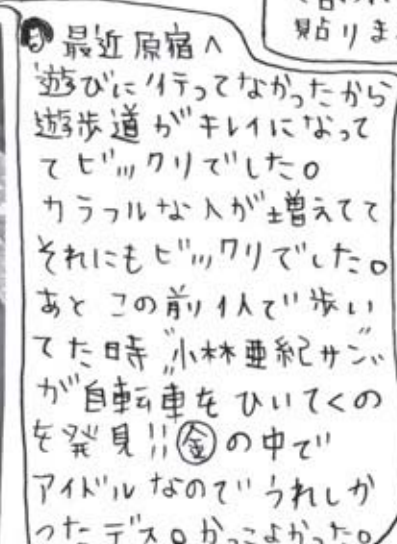 貼りま
最近原宿へ
遊びに行ってなかったから
遊歩道がキレイになって
てビックリでした。
カラフルな人が増えてて
それにもビックリでした。
あとこの前1人で歩い
てた時〝小林亜紀サン〟
が自転車をひいてくの
を発見!!㊎の中で
アイドルなのでうれしか
ったデス。かっこよかった。